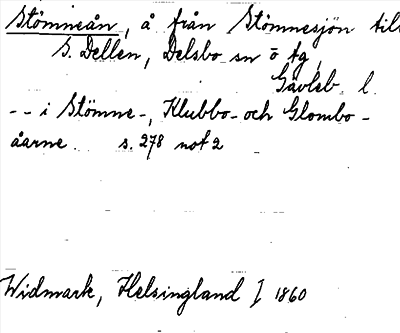 Stömneån, å från Stömnesjön till
S. Dellen, Delsbo sn o tg,
Gävleb. l.
-- i Stömne-, Klubbo- och Glombo-
åarne. s. 278 not 2
Widmark, Helsingland I 1860